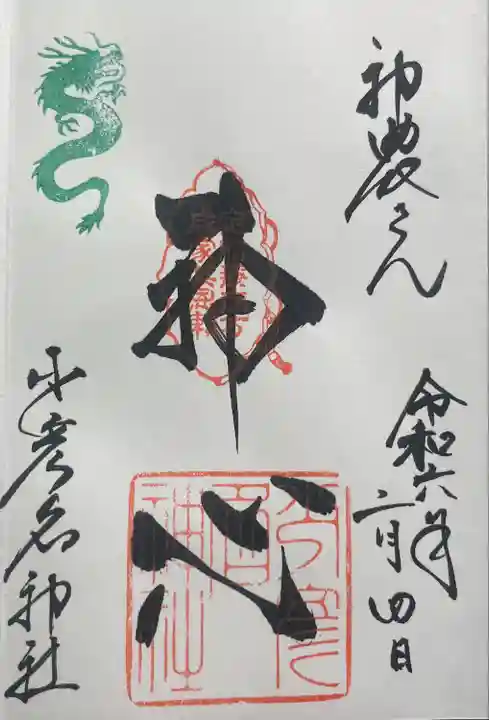 神農さん
令和六年
二月四日
心
少彦名神社
少彦
名
神社